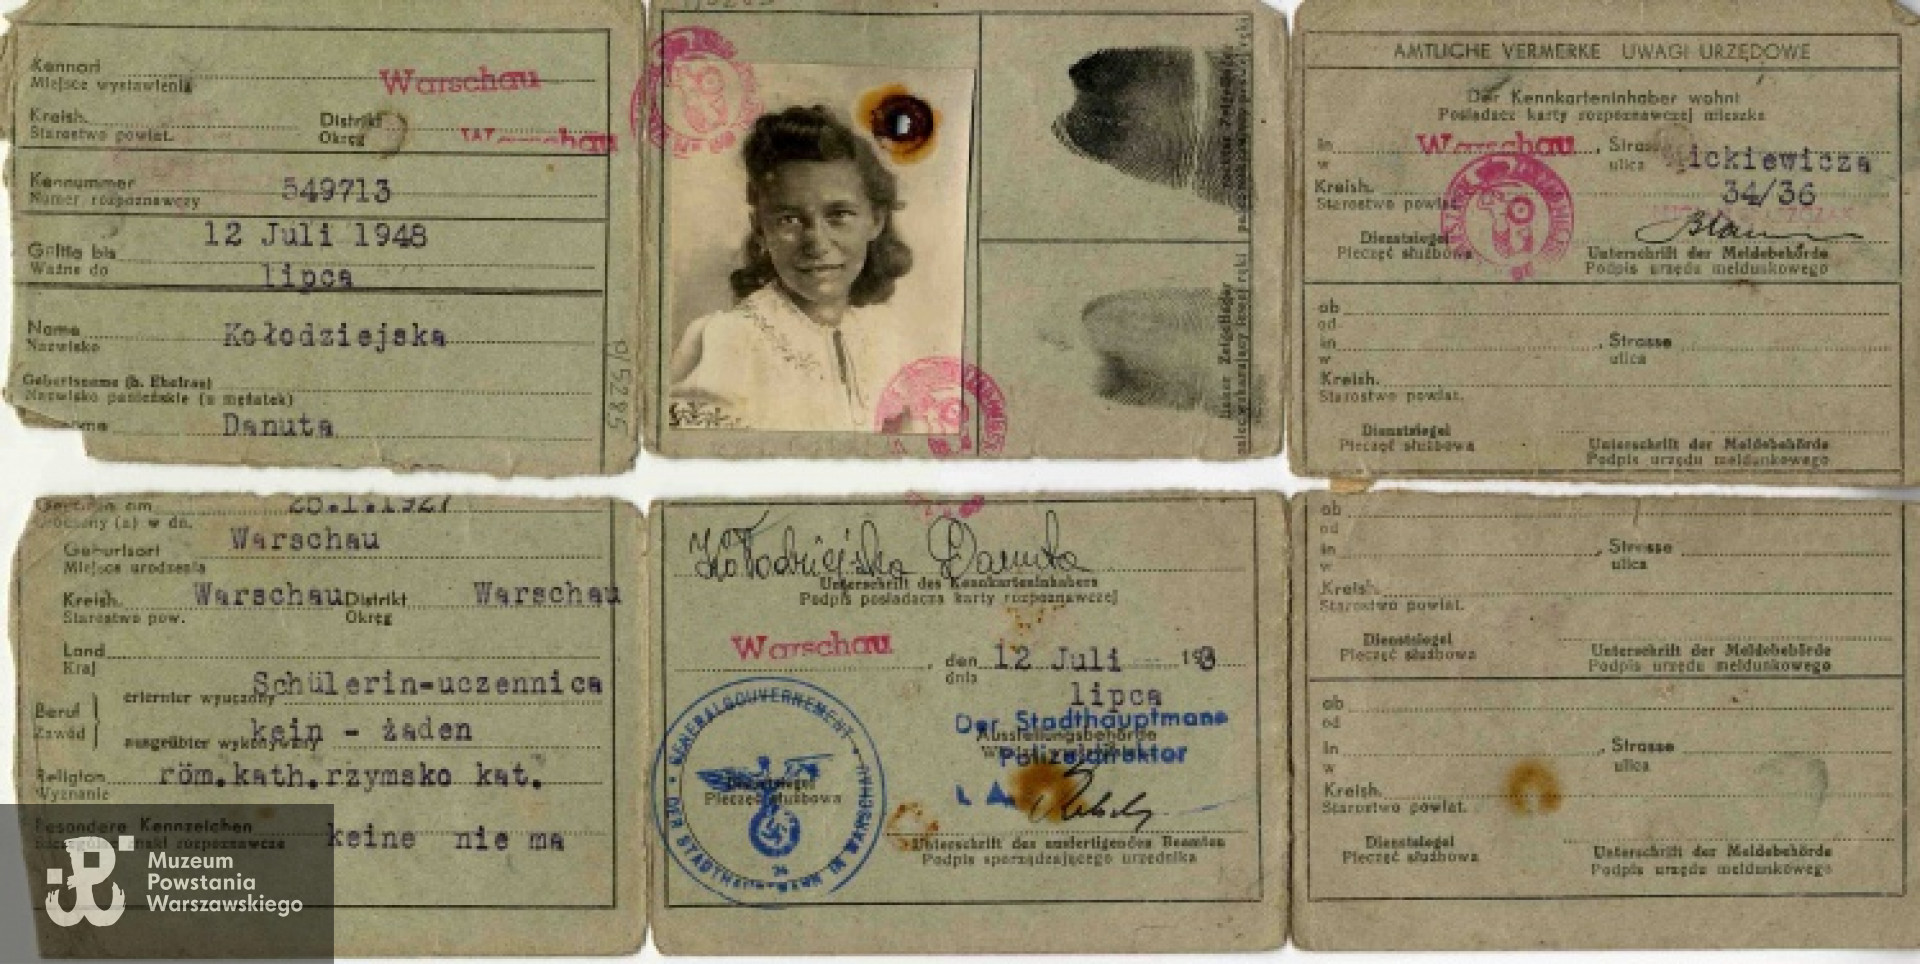 Kennort
Miejsce wystawienia
Warschau
Kreish.
Starostwo powiat.
Distrikt
Okręg
Warschau
Kennummer
Numer rozpoznawczy
549713
Gültig bis
Ważne do
12 Juli 1948
lipca
Name
Nazwisko
Kołodziejska
Geburtsname (b. Ehefrau)
Nazwisko panieńskie (u mężatek)
Danuta
0/5285
rechter Zeigefinger
linker Zeigefinger
AMTLICHE VERMERKE UWAGI URZĘDOWE
Der Kennkarteninhaber wohnt
Posiadacz karty rozpoznawczej mieszka
in
w
Warschau
, Strasse
ulica
ickiewicza
34/36
Kreish.
Starostwo powiat.
Dienstsiegel
Pieczęć służbowa
Unterschrift der Meldebehörde
Podpis urzędu meldunkowego
ab
od
in
w
, Strasse
ulica
Kreish.
Starostwo powiat.
Dienstsiegel
Pieczęć służbowa
Unterschrift der Meldebehörde
Podpis urzędu meldunkowego
Geboren am
Urodzony (a) w dn.
1.1927
Geburtsort
Miejsce urodzenia
Warschau
Kreish.
Starostwo pow.
Warschau
Distrikt
Okręg
Warschau
Land
Kraj
Beruf
Zawód
erlernter wyuczony
Schülerin-uczennica
ausgeübter wykonywany
kein - żaden
Religion
Wyznanie
röm.kath.rzymsko kat.
Besondere Kennzeichen
Szczególne znaki rozpoznawcze
keine nie ma
Muzeum
Powstania
Warszawskiego
Kołodziejska Danuta
Unterschrift des Kennkarteninhabers
Podpis posiadacza karty rozpoznawczej
Warschau
, den
dnia
12 Juli
lipca
Der Stadthauptmann
Ausstellungsbehörde
Polizeidirektor
Dienstsiegel
Pieczęć służbowa
GENERALGOUVERNEMENT
DER STADTHAUPTMANN IN WARSCHAU
Unterschrift des ausfertigenden Beamten
Podpis sporządzającego urzędnika
ab
od
in
w
, Strasse
ulica
Kreish.
Starostwo powiat.
Dienstsiegel
Pieczęć służbowa
Unterschrift der Meldebehörde
Podpis urzędu meldunkowego
ab
od
in
w
, Strasse
ulica
Kreish.
Starostwo powiat.
Dienstsiegel
Pieczęć służbowa
Unterschrift der Meldebehörde
Podpis urzędu meldunkowego